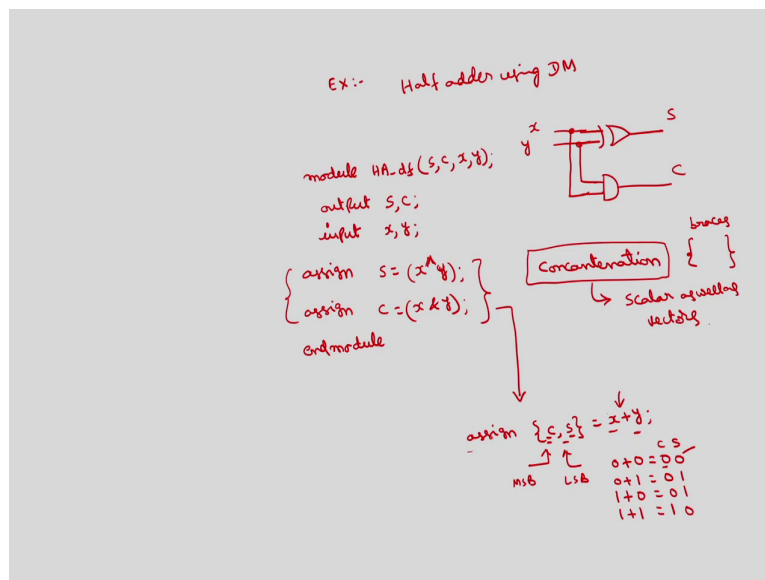 Ex:- Half adder using DM
x
y
S
C
module HA_df(S,C,x,y);
output S,C;
input x,y;
{ assign S=(x^y);
assign C=(x&y); }
endmodule
Concantenation
braces
{ }
Scalar as well as
vectors
assign {C,S} = x+y;
MSB LSB
C S
0+0=00
0+1=01
1+0=01
1+1=10